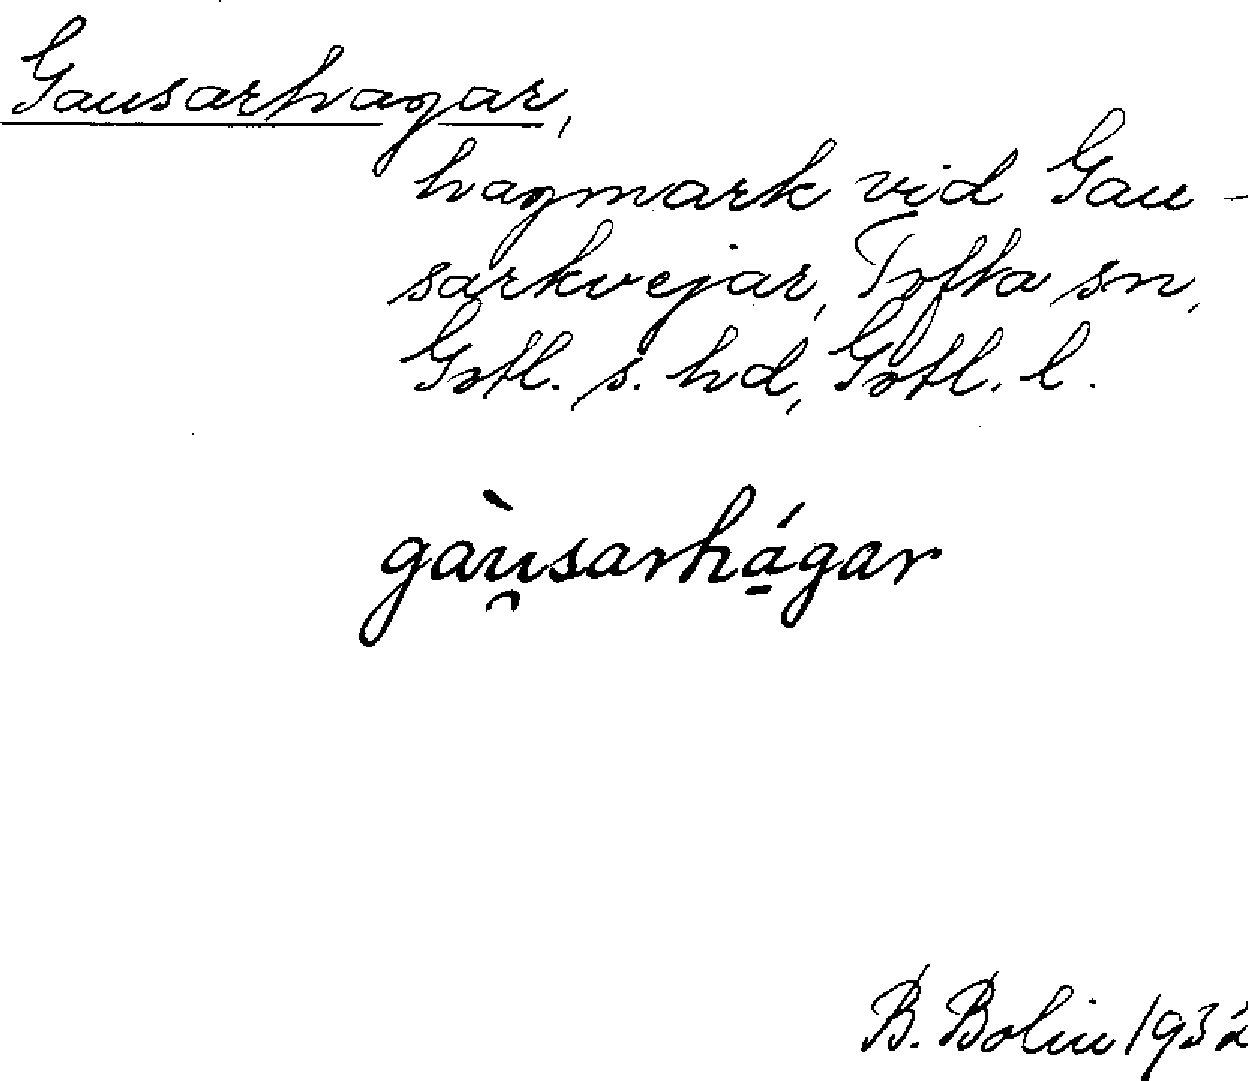 Gausarhagar,
hagmark vid Gau-
sarkvejar, Tofta sn,
Gotl. s. hd, Gotl. l.
gàu̯sarhá̱gar
B. Bolin 1932